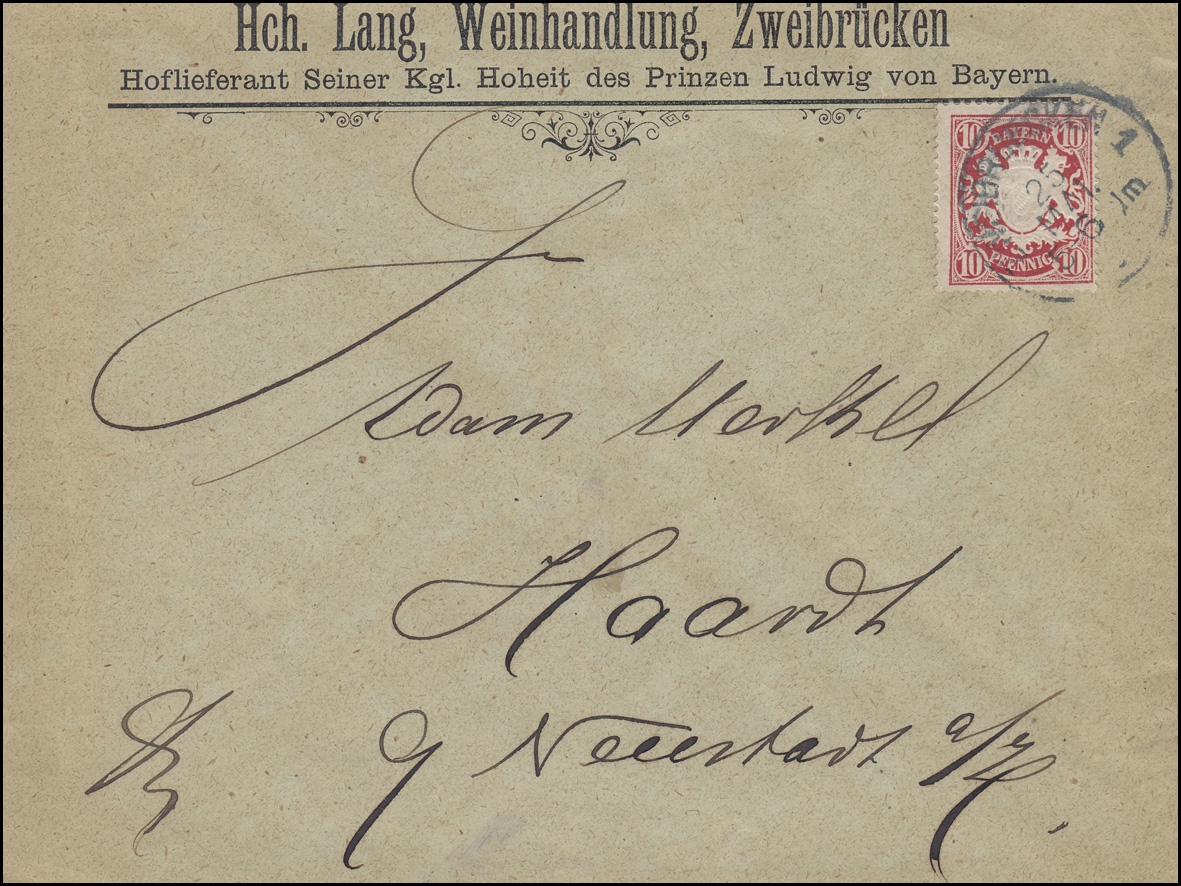 Hch. Lang, Weinhandlung, Zweibrücken
Hoflieferant Seiner Kgl. Hoheit des Prinzen Ludwig von Bayern.
10 BAYERN 10
10 PFENNIG 10
Adam Merkel
Haardt
Neustadt a/H.